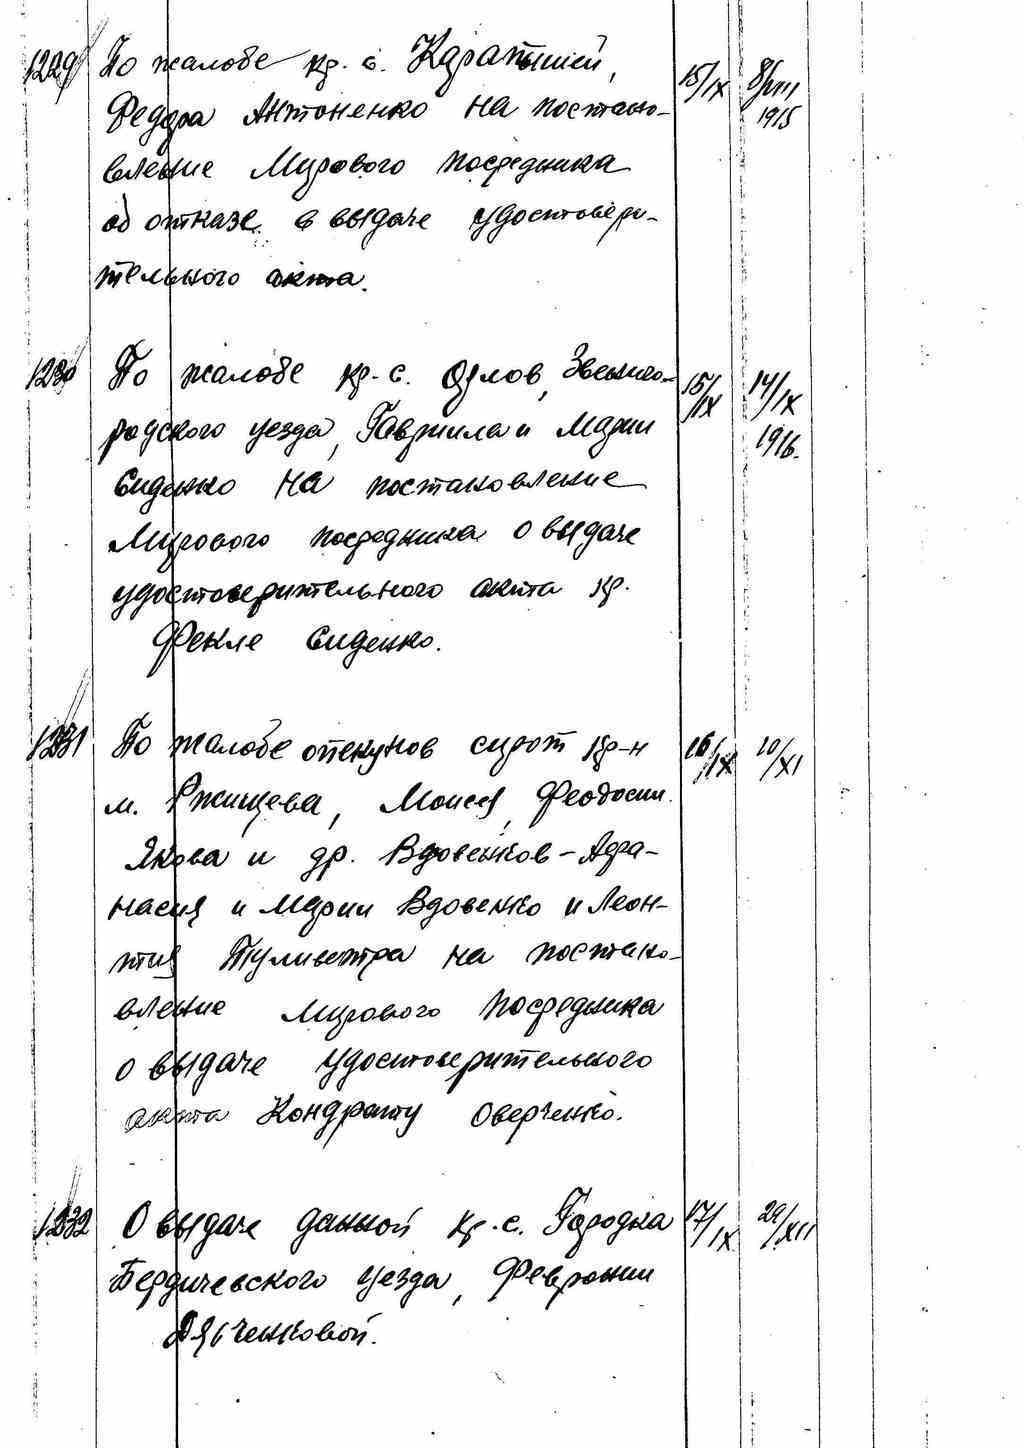 1229 По жалобе кр. с. Карапышей, 15/IX 8/VIII
Федора Антоненко на постано- 1915
вление Мирового посредника
об отказе в выдаче удостовери-
тельного акта.
1230 По жалобе кр. с. Орлов, Звениго- 15/IX 14/IX
родского уезда, Гавриила и Марии 1916.
Сиденко на постановление
Мирового посредника о выдаче
удостоверительного акта кр.
Фекле Сиденко.
1231 По жалобе опекунов сирот кр-н 16/IX 20/XI
м. Ржищева, Моисея, Феодосии
Якова и др. Вдовенков - Афа-
насия и Марии Вдовенко и Леон-
тия Туливетра на постано-
вление мирового посредника
о выдаче удостоверительного
акта Кондрату Оверченко.
1232 О выдаче данной кр. с. Городка 17/IX 29/XII
Бердичевского уезда, Февронии
Дяченковой.